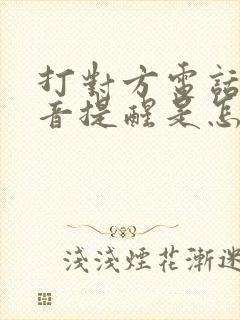 打對方電話
音提醒是怎
淺淺煙花漸迷